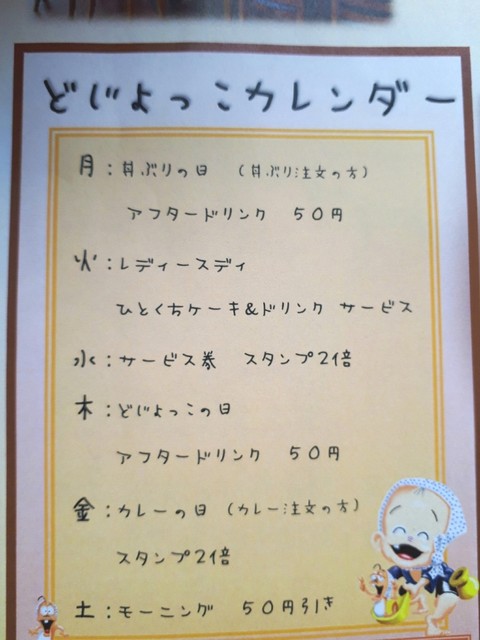 どじょっこカレンダー
月：丼ぶりの日 （丼ぶり注文の方）
アフタードリンク ５０円
火：レディースディ
ひとくちケーキ＆ドリンク サービス
水：サービス券 スタンプ２倍
木：どじょっこの日
アフタードリンク ５０円
金：カレーの日（カレー注文の方）
スタンプ２倍
土：モーニング ５０円引き